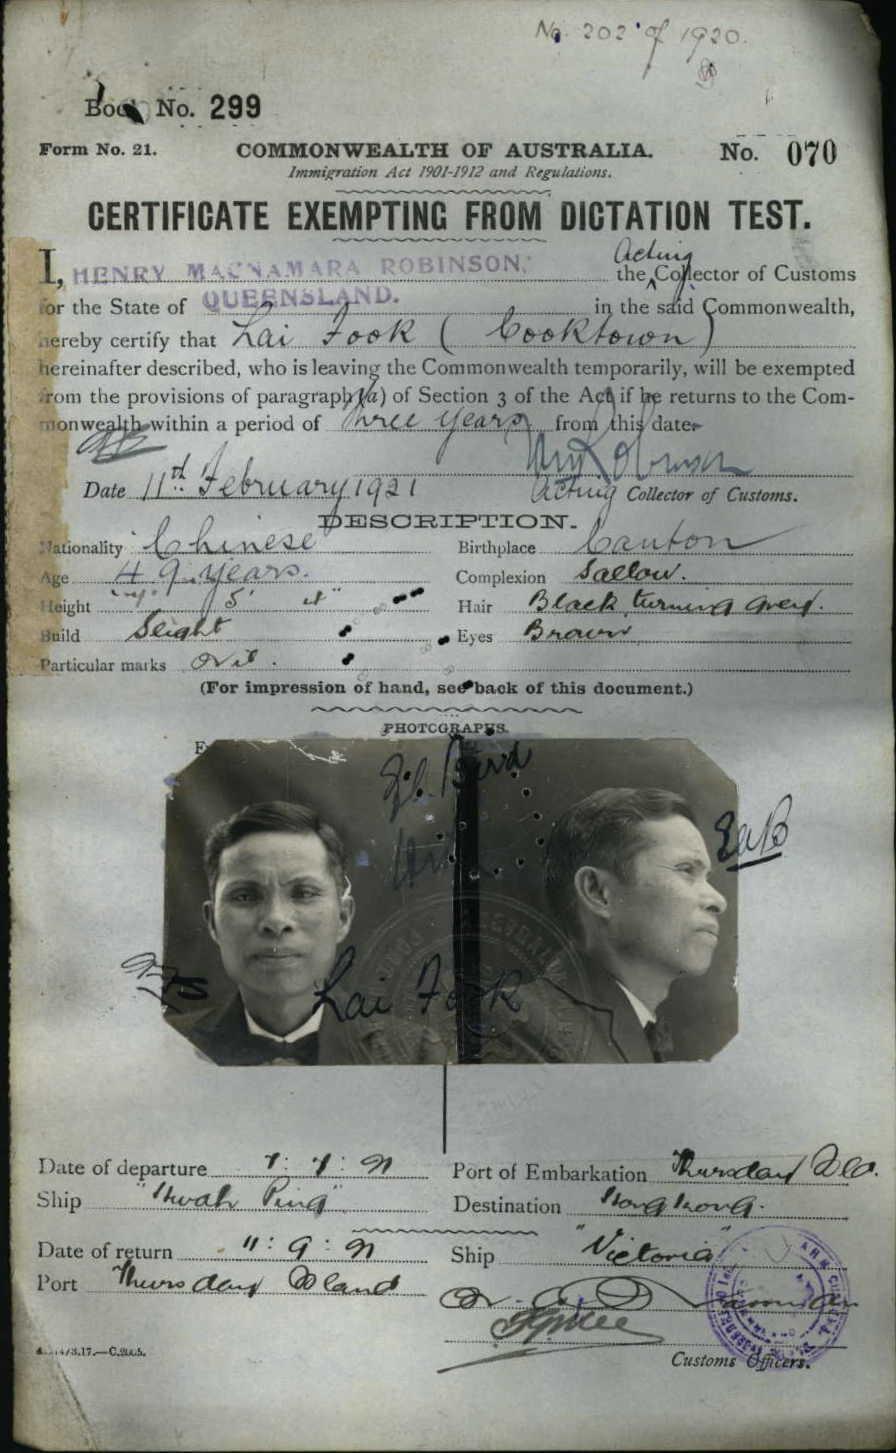 No. 202 of 1920.
Book No. 299
Form No. 21.
COMMONWEALTH OF AUSTRALIA.
No. 070
Immigration Act 1901-1912 and Regulations.
CERTIFICATE EXEMPTING FROM DICTATION TEST.
I, HENRY MACNAMARA ROBINSON, the Acting Collector of Customs
for the State of QUEENSLAND. in the said Commonwealth,
hereby certify that Lai Fook (Cooktown)
hereinafter described, who is leaving the Commonwealth temporarily, will be exempted
from the provisions of paragraph (a) of Section 3 of the Act if he returns to the Com-
monwealth within a period of three years from this date.
Date 11th February 1921
Acting Collector of Customs.
DESCRIPTION.
Nationality Chinese
Birthplace Canton
Age 49 years.
Complexion Sallow.
Height 5'
Hair Black turning Grey.
Build Slight
Eyes Brown
Particular marks Nil.
(For impression of hand, see back of this document.)
PHOTOGRAPHS.
Lai Fook
Date of departure
Port of Embarkation Thursday Isld.
Ship "Hwah Ping"
Destination Hong Kong.
Date of return 11:9:21
Ship "Victoria"
Port Thursday Island
Customs Officers.